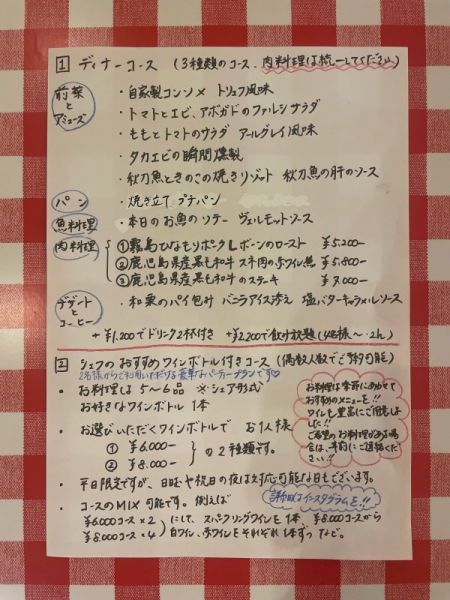 1 ディナーコース (3種類のコース、肉料理は統一してください)
前菜とアミューズ
・自家製コンソメ トリュフ風味
・トマトとエビ、アボガドのファルシサラダ
・ももとトマトのサラダ アールグレイ風味
・タカエビの瞬間燻製
・秋刀魚ときのこの焼きリゾット 秋刀魚の肝のソース
パン ・焼き立てプチパン
魚料理 ・本日のお魚のソテー ヴェルモットソース
肉料理 ①霧島ひなもりポークLボーンのロースト ¥5,200-
②鹿児島県産黒毛和牛スネ肉の赤ワイン煮 ¥5,800-
③鹿児島県産黒毛和牛のステーキ ¥7,000-
デザートとコーヒー ・和栗のパイ包み バニラアイス添え 塩バターキャラメルソース
+¥1,200でドリンク2杯付き +¥2,200で飲み放題(4名様〜・2h)
2 シェフのおすすめワインボトル付きコース (偶数人数でご予約可能)
2名様からご利用いただける豪華なパーティープランです♡
・お料理は5〜6品 ※シェア形式
お好きなワインボトル1本
・お選びいただくワインボトルで お1人様
① ¥6,000-
② ¥8,000-
の2種類です。
お料理は季節にあわせて
おすすめのメニューを!!
ワインも豊富にご用意しま
した!!
ご希望のお料理がある場
合は、事前にご連絡くださ
い!!
・平日限定ですが、日曜や祝日の夜は対応可能な日もございます。
・コースのMIX可能です。例えば
詳細はインスタグラムを!!
¥6,000コース×2
¥8,000コース×4
にして、スパークリングワインを1本、¥8,000コースから
白ワイン、赤ワインをそれぞれ1本ずつなど。